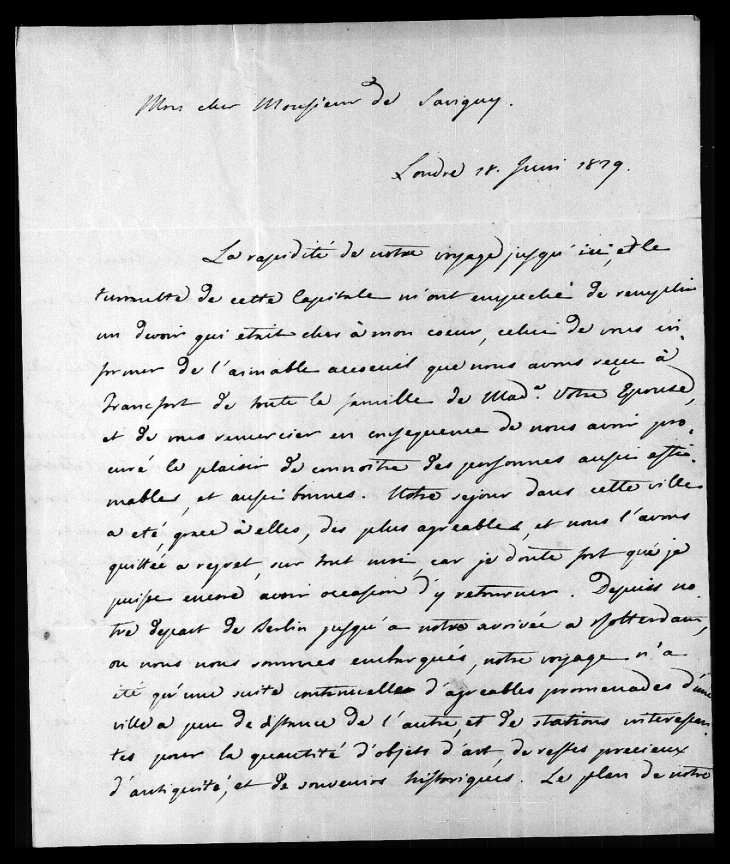 Mon cher Monsieur de Savigny.
Londre 18. Juin 1829.
La rapidité de notre voyage jusqu'ici, et le
tumulte de cette Capitale m'ont empeché de remplir
un devoir qui était cher à mon coeur, celui de vous in,
former de l'aimable acceuil que nous avons reçu à
Francfort de toute la famille de Mad.e Votre Epouse,
et de vous remercier en conseguence de nous avoir pro,
curé le plaisir de connoître des personnes aussi esti,
mables, et aussi bonnes. Notre sejour dans cette ville
a eté, grace à elles, des plus agreables, et nous l'avons
quittée a regret, sur tout moi, car je doute fort que je
puisse encore avoir occasion d'y retourner. Depuis no,
tre depart de Berlin jusqu'a notre arrivée a Rotterdam,
ou nous nous sommes embarqués, notre voyage n'a
été qu'une suite continuelle d'agreables promenades d'une
ville a peu de distance de l'autre, et de stations interessan,
tes pour la quantité d'objets d'art, de restes precieux
d'antiquité, et de souvenirs historiques. Le plan de notre